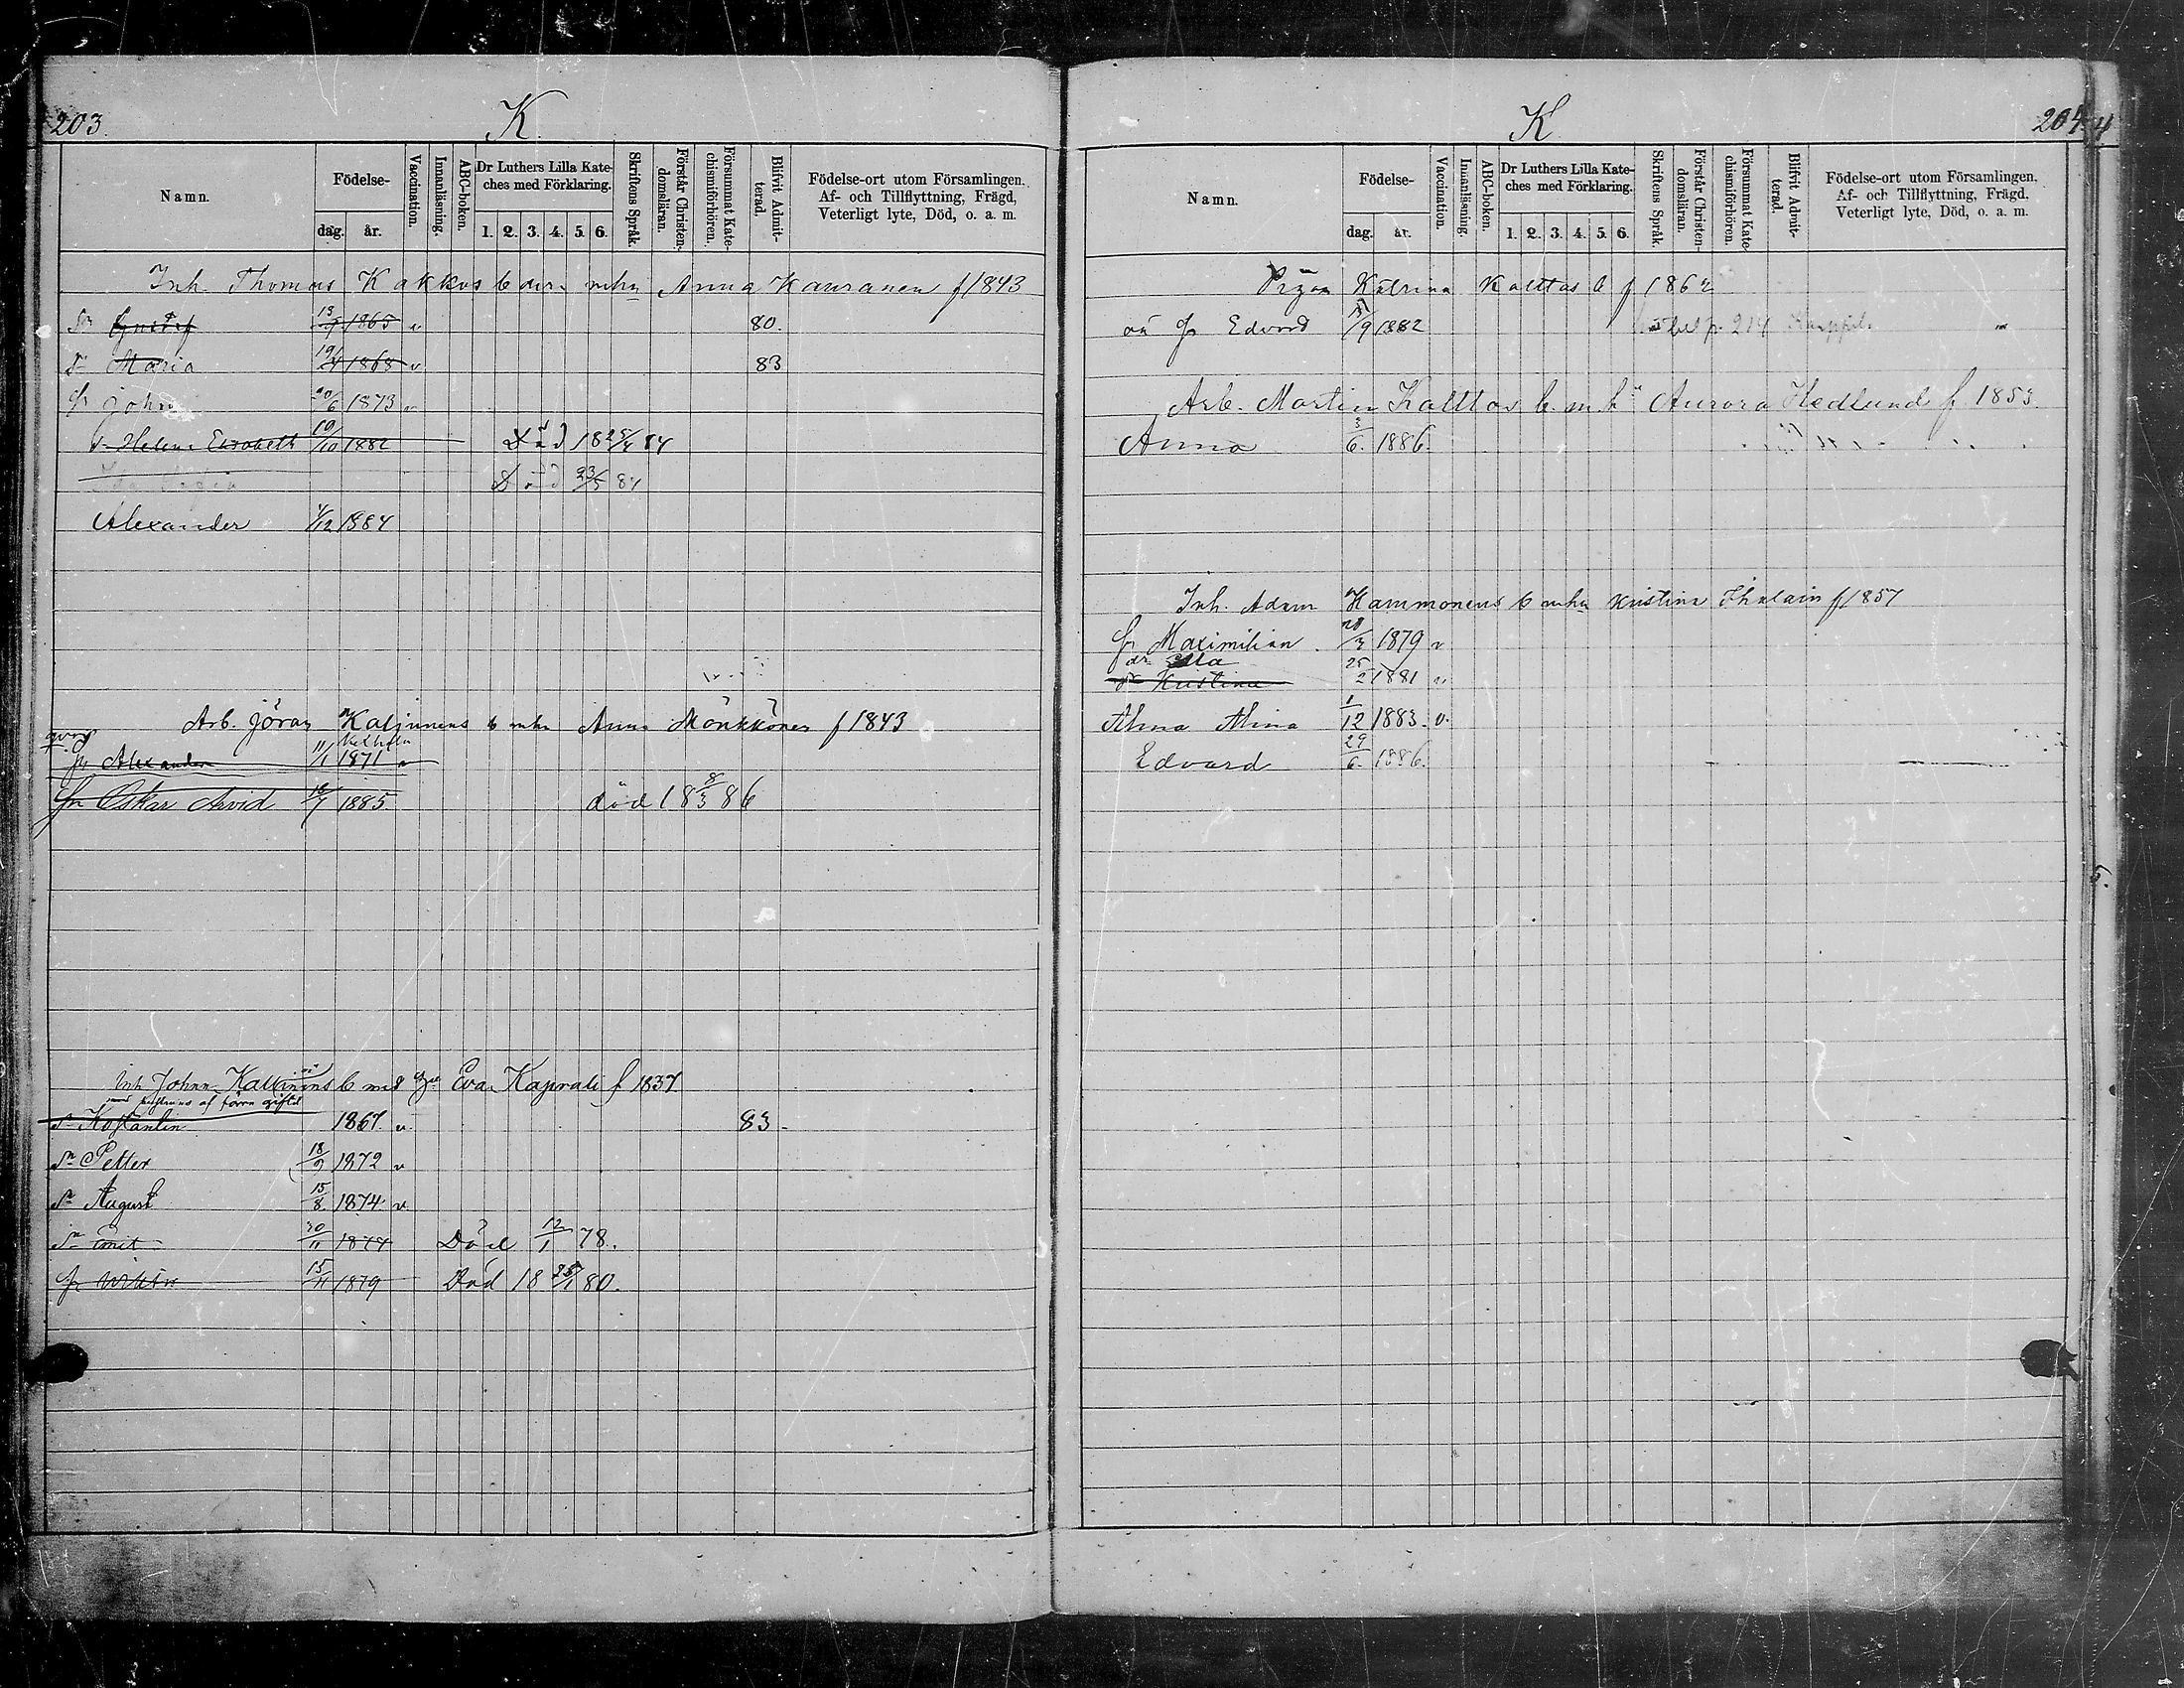 203.
K.
Namn.
Födelse-
dag.
år.
Vaccination.
Innanläsning.
ABC-boken.
Dr Luthers Lilla Kate-
ches med Förklaring.
1. 2. 3. 4. 5. 6.
Skriftens Språk.
Förstår Christen-
domsläran.
Försummat Kate-
chismiförhören.
Blifvit Admit-
terad.
Födelse-ort utom Församlingen.
Af- och Tillflyttning, Frägd,
Veterligt lyte, Död, o. a. m.
Inh. Thomas Kakkos b mhu Anna Kauranen f 1843
Sn Gustaf 13/9 1865 v 80.
Dr Maria 19/4 1868 v 83
Gr John 20/6 1873 v
Dr Helena Elisabeth 19/10 1882 Död 18 25/4 84
Död 23/5 84
Alexander 4/12 1884
Arb. Jöran Kaljunens b mhu Anna Mönkkönen f 1843
gr Alexander 11/1 1871 v
gr Oskar Arvid 18/7 1885. död 18 8/3 86
Inh Johan Kallinens b med Eva Kaprali f 1837
af förra giftet
1867. v. 83.
Sn Petter 18/9 1872 v
Sn August 15/8 1874 v
Sn Emil 30/11 1877 Död 12/1 78.
15/11 1879 Död 18 25/1 80.
K
204
4
Namn.
Födelse-
dag.
år.
Vaccination.
Innanläsning.
ABC-boken.
Dr Luthers Lilla Kate-
ches med Förklaring.
1. 2. 3. 4. 5. 6.
Skriftens Språk.
Förstår Christen-
domsläran.
Försummat Kate-
chismiförhören.
Blifvit Admit-
terad.
Födelse-ort utom Församlingen.
Af- och Tillflyttning, Frägd.
Veterligt lyte, Död, o. a. m.
Pigan Katrina Kalttos b f 1862
oä gr Edvard 15/9 1882 p. 214
Arb. Martin Kalttos b. m. h. Aurora Hedlund f 1853.
Anna 3/6. 1886.
Inh. Adam Kammonens b mhu Kristina Ihalain f 1857
gr Maximilian 28/3 1879 v
dr Ella
dr Kristina 25/2 1881 v
Alma Alina 1/12 1883. v.
Edvard 29/6. 1886.
5.